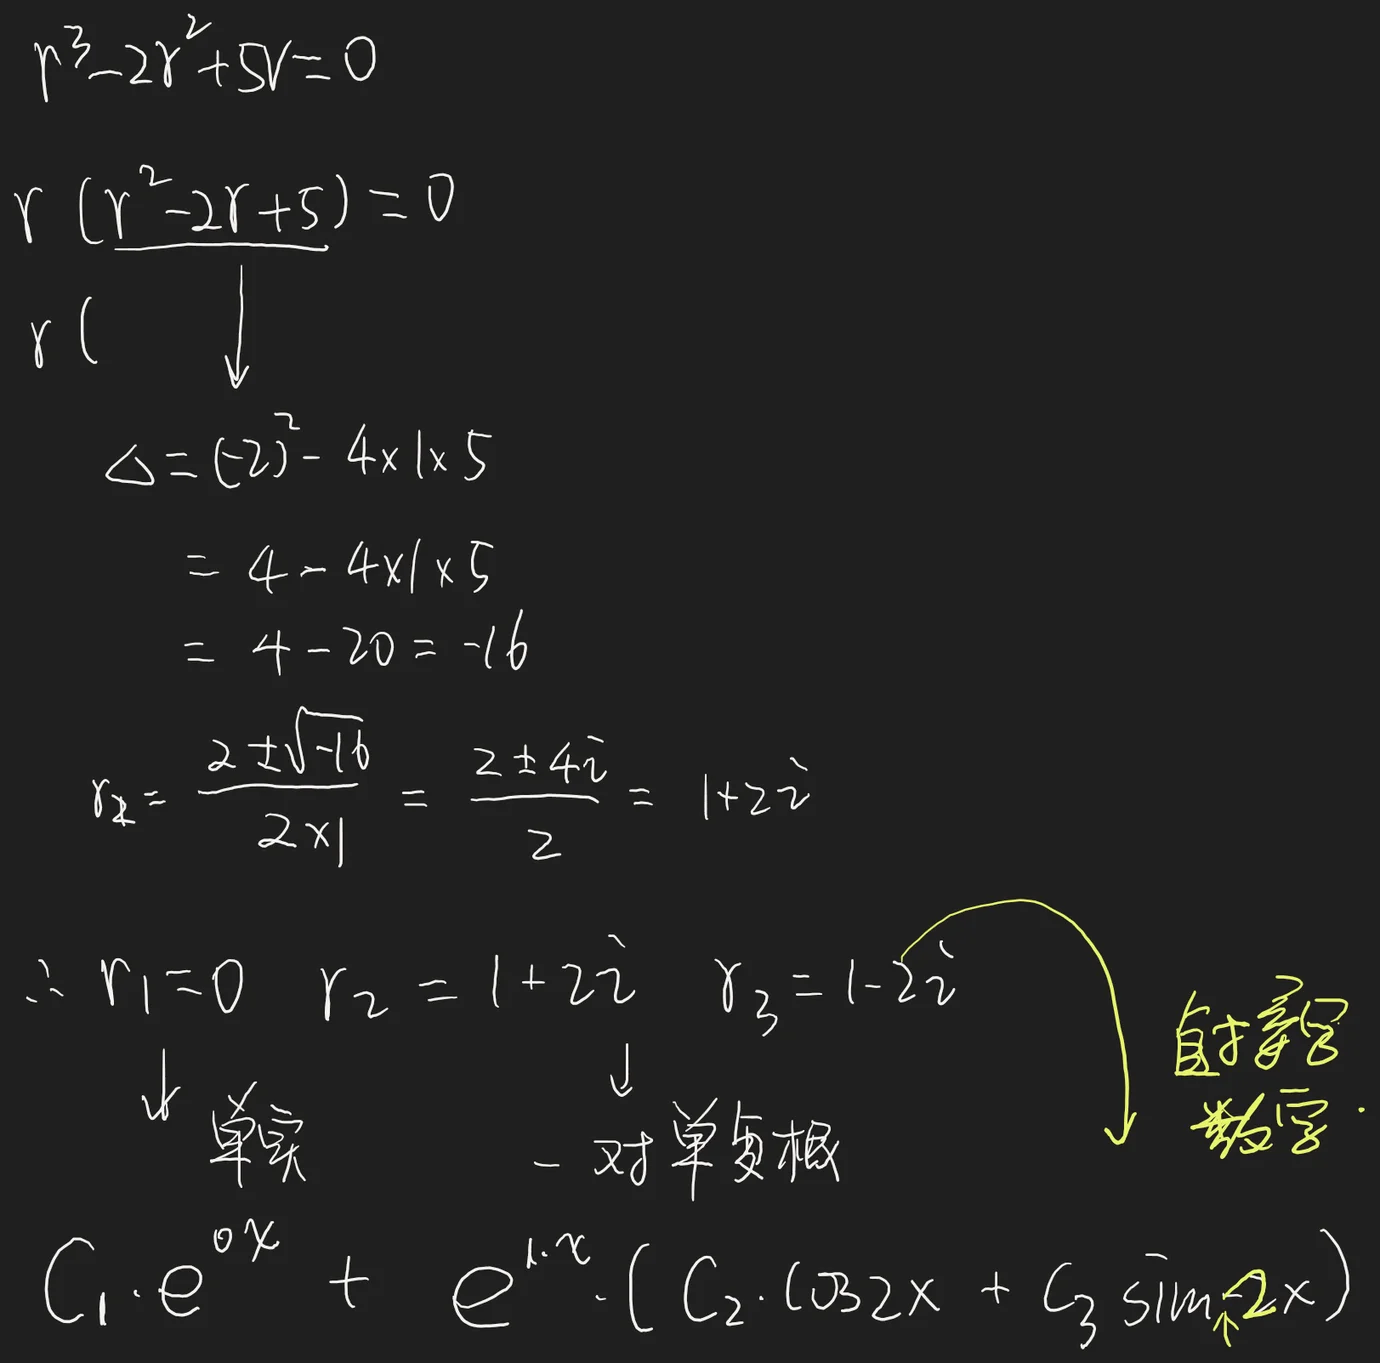 r³-2r²+5r=0
r(r²-2r+5)=0
r(
△=(-2)²-4×1×5
=4-4×1×5
=4-20=-16
r₂=(2±√-16)/(2×1)=(2±4i)/2=1+2i
∴ r₁=0 r₂=1+2i r₃=1-2i
单实 一对单复根
数字.
C₁·e^(0x) + e^(1·x)·(C₂·cos2x + C₃ sin-2x)